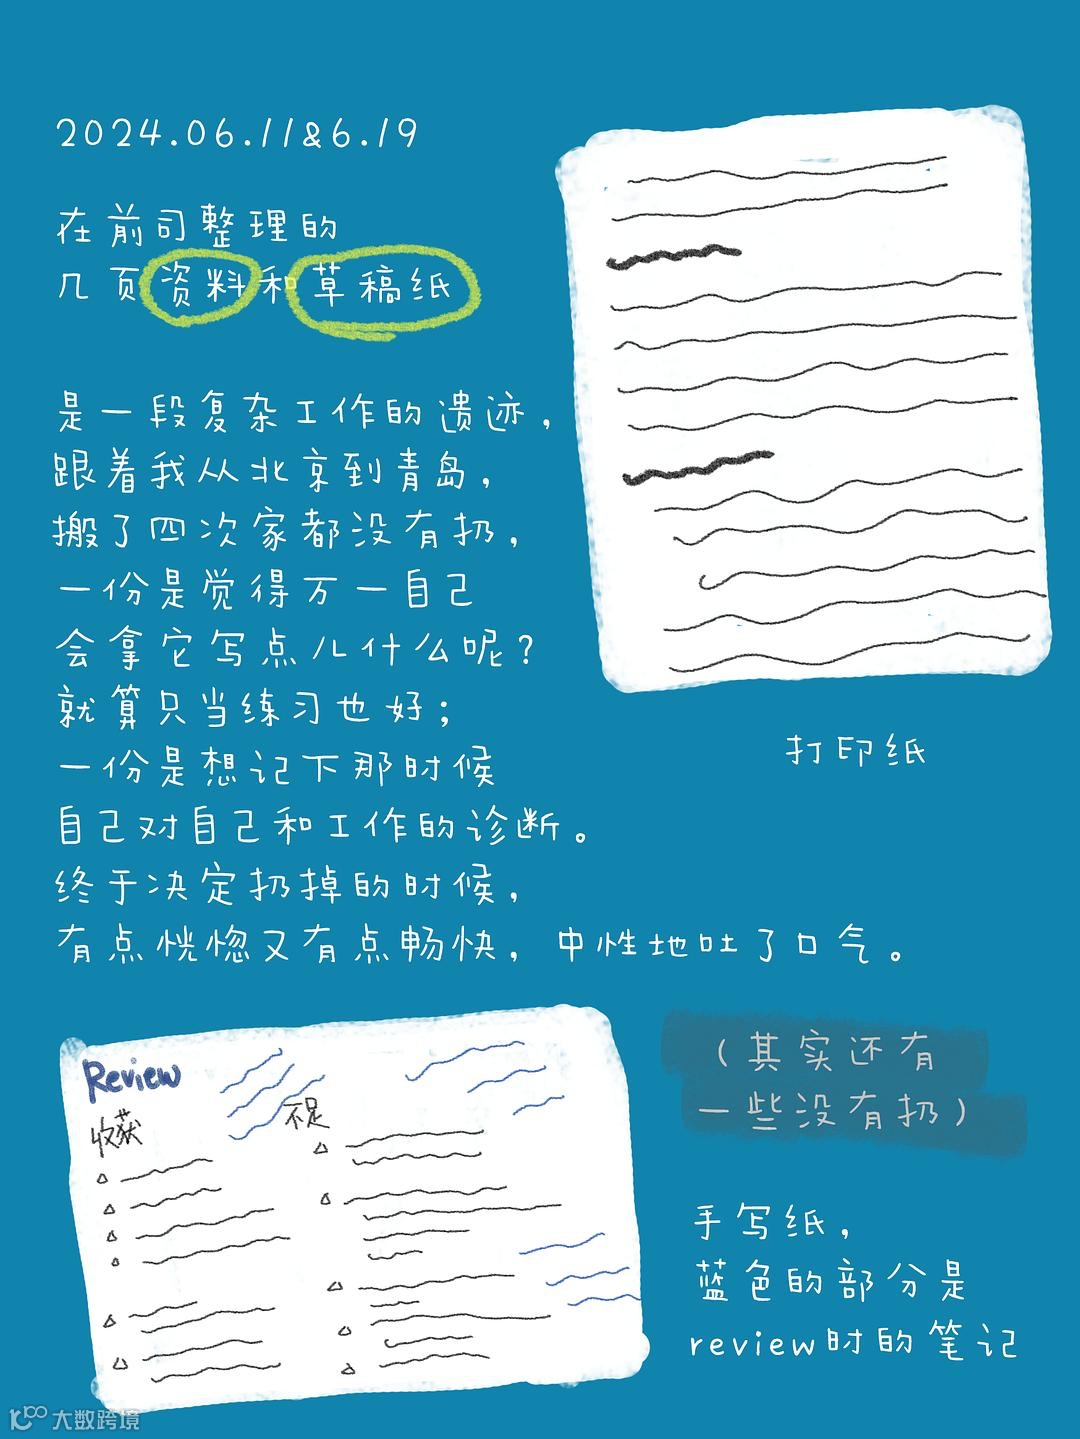 2024.06.11&6.19
在前司整理的
几页资料和草稿纸
是一段复杂工作的遗迹，
跟着我从北京到青岛，
搬了四次家都没有扔，
一份是觉得万一自己
会拿它写点儿什么呢？
就算只当练习也好；
一份是想记下那时候
自己对自己和工作的诊断。
终于决定扔掉的时候，
有点恍惚又有点畅快，中性地吐了口气。
打印纸
Review
收获
不足
（其实还有
一些没有扔）
手写纸，
蓝色的部分是
review时的笔记
大数跨境